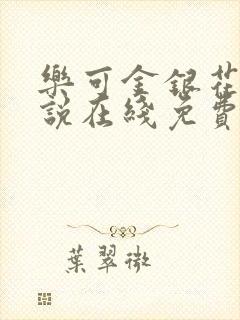 樂可金銀花
說在綫免費
葉翠微